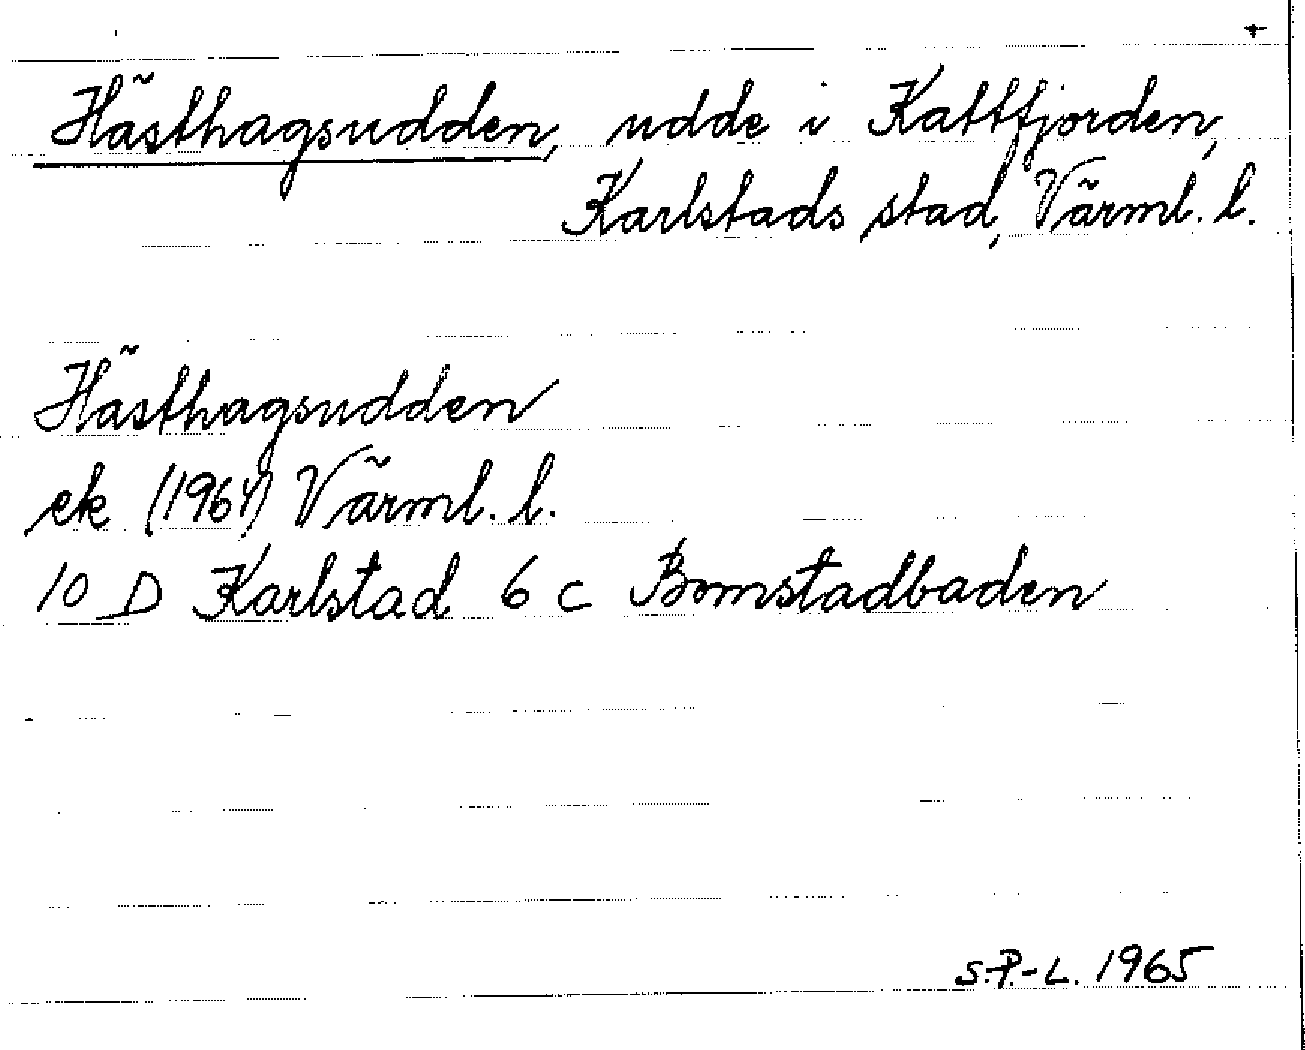 +
Hästhagsudden, udde i Kattfjorden,
Karlstads stad, Värml. l.
Hästhagsudden
ek (1964) Värml. l.
10 D Karlstad 6 c Bomstadbaden
S.P.-L. 1965